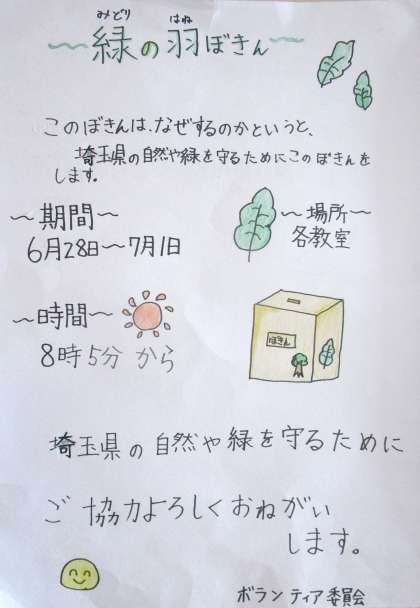 みどり はね
〜緑の羽ぼきん〜
このぼきんは、なぜするのかというと、
埼玉県の自然や緑を守るためにこのぼきんを
します。
〜期間〜
6月28日〜7月1日
〜場所〜
各教室
〜時間〜
8時5分から
ぼきん
埼玉県の自然や緑を守るために
ご協力よろしくおねがい
します。
ボランティア委員会